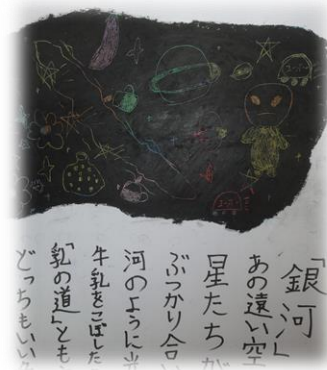 「銀河」
あの遠い空
星たちが
ぶつかり合い
河のように光
牛乳をこぼした
「乳の道」とも
どっちもいい